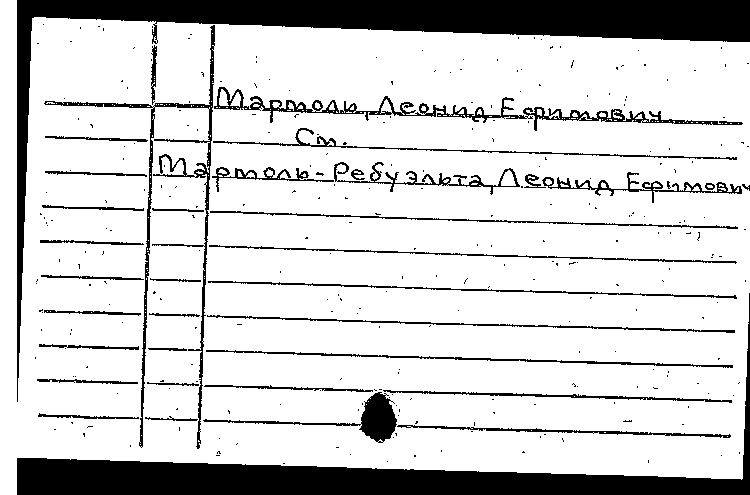 Мартоли, Леонид Ефимович
См.
Мартоль-Ребуэльта, Леонид Ефимович